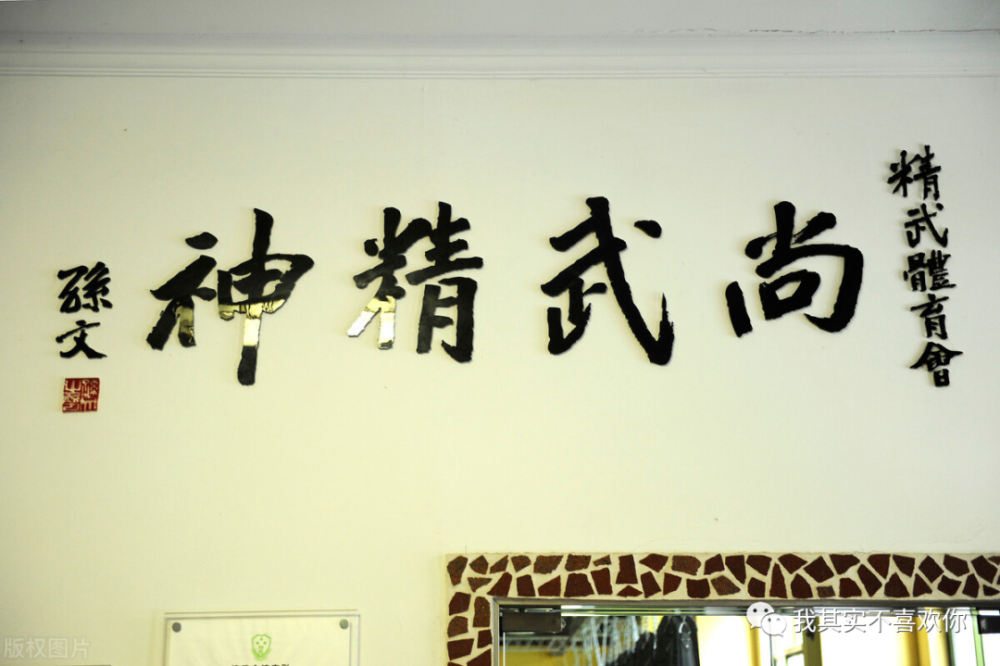 精武體育會
尚武精神
孫文
版权图片
我其实不喜欢你